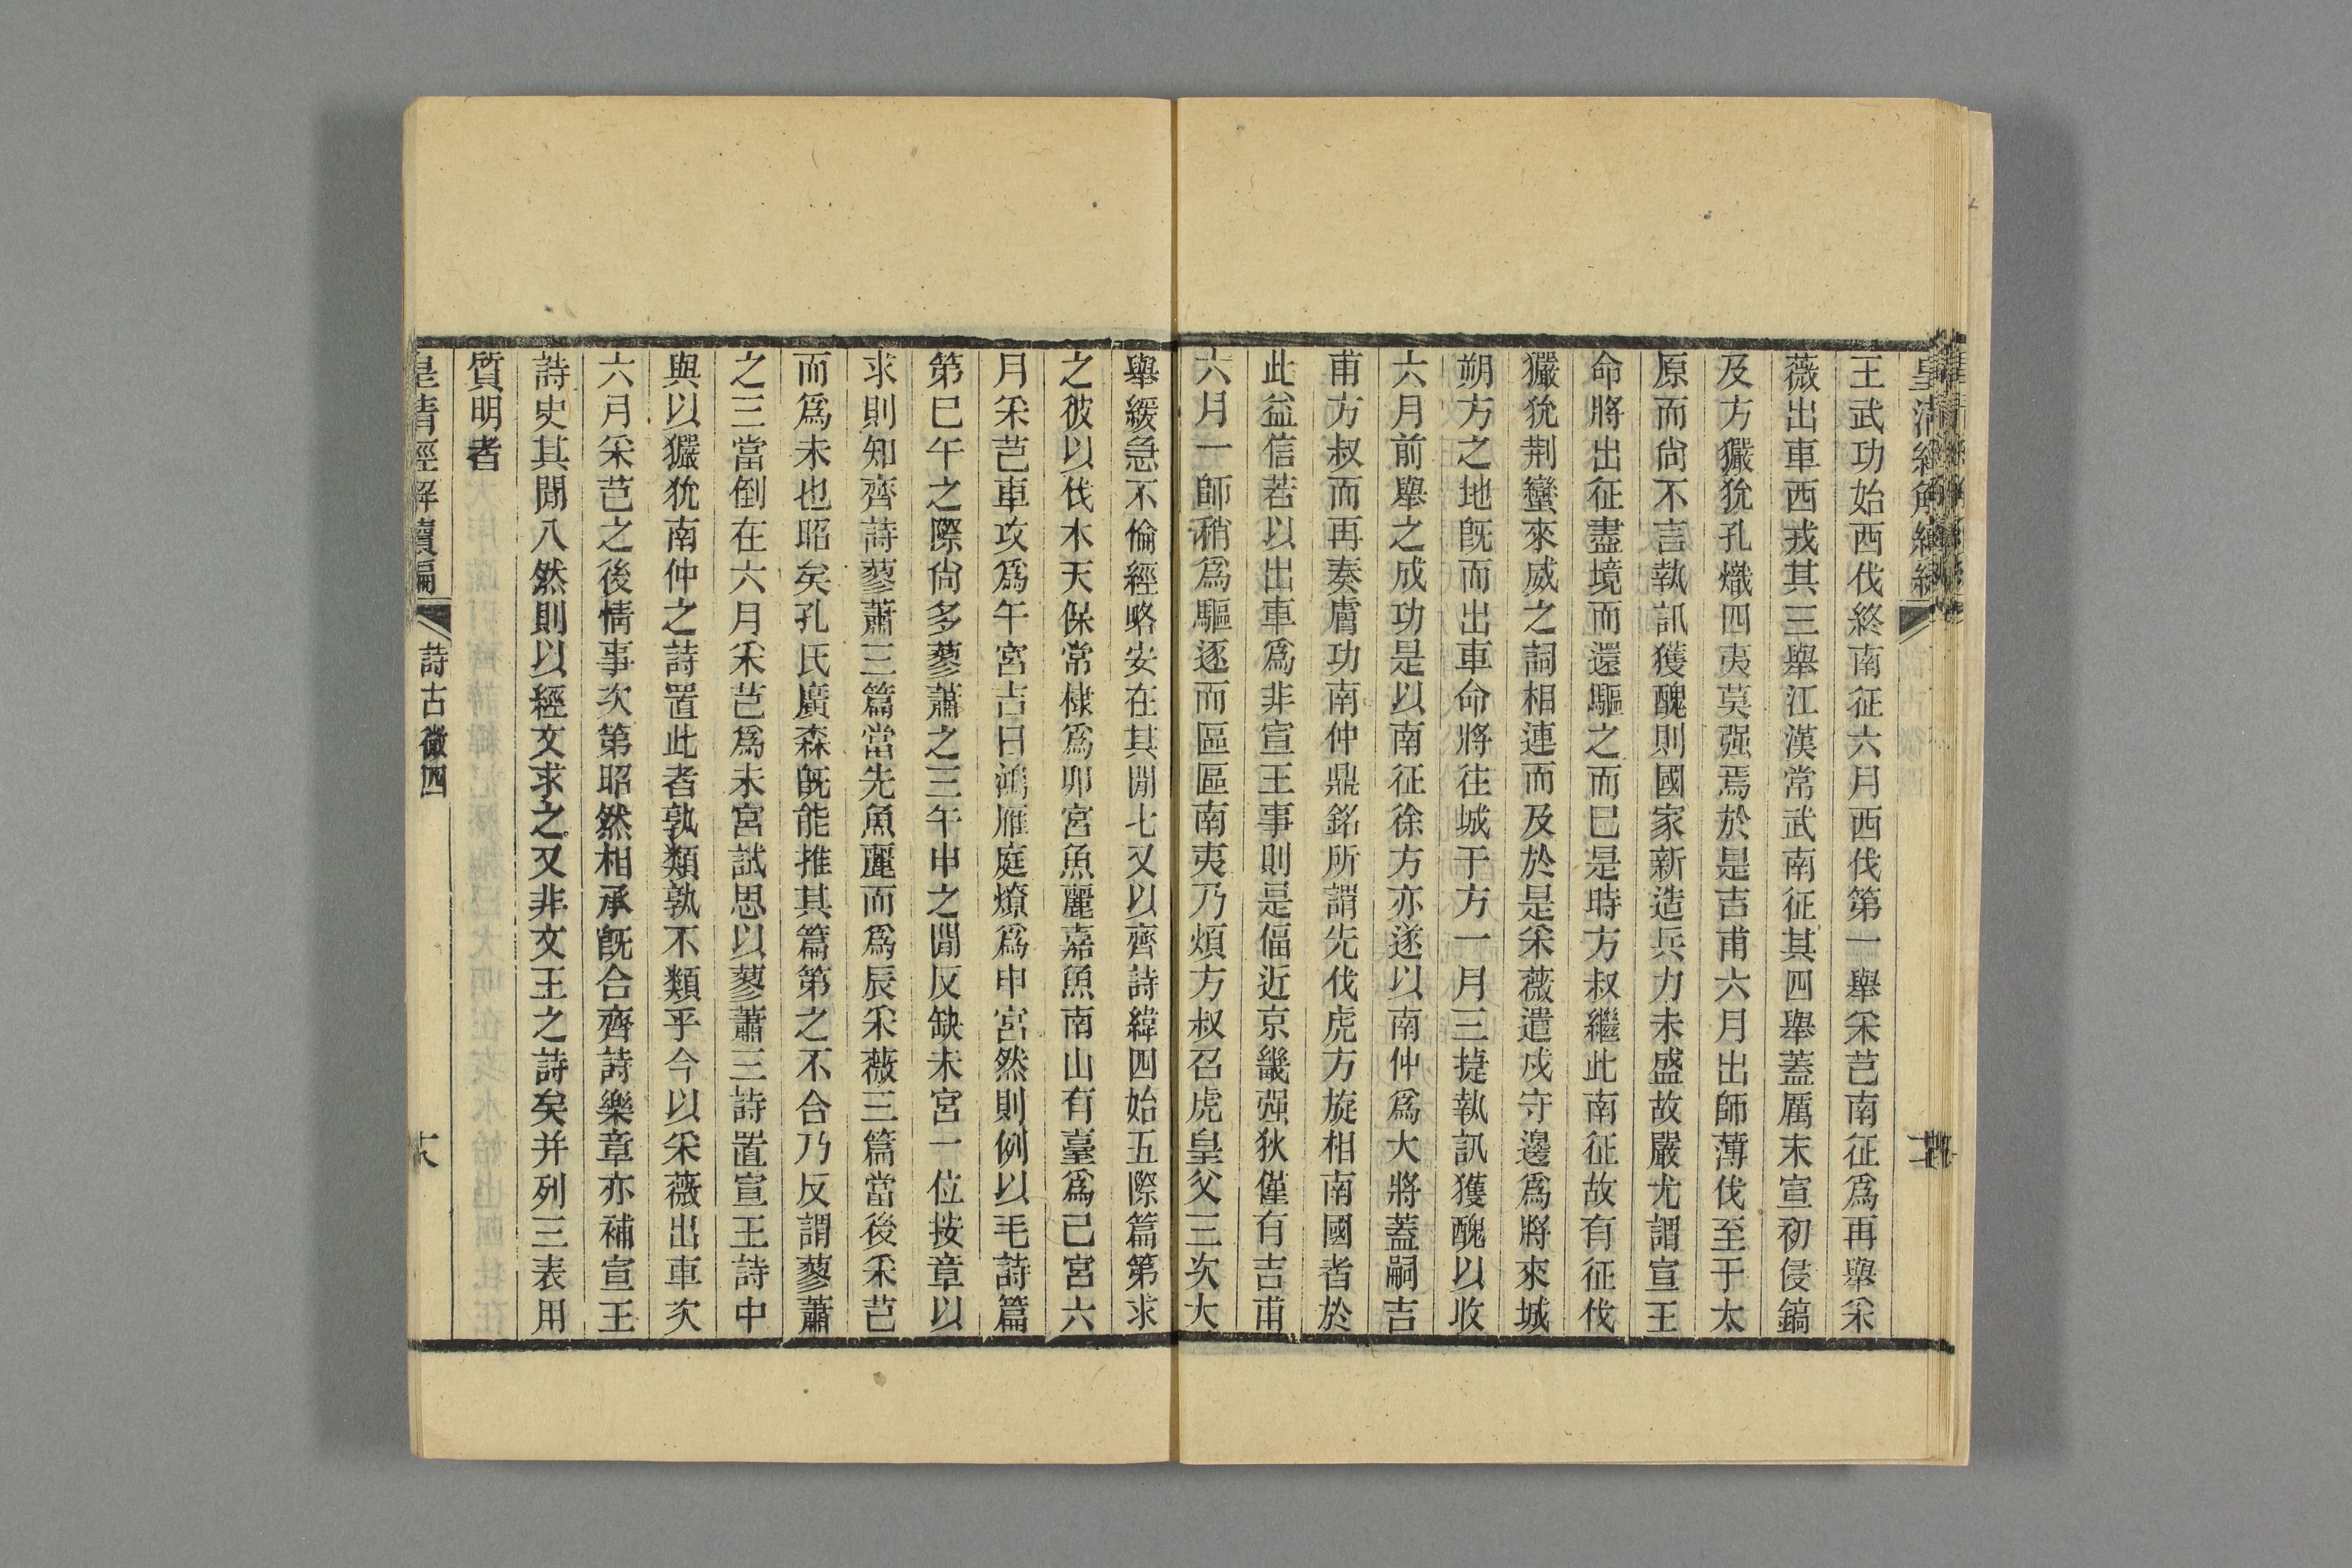 王武功始西伐終南征六月西伐第一舉采芑南征爲再舉采
薇出車西戎其三舉江漢常武南征其四舉蓋厲末宣初侵鎬
及方玁狁孔熾四夷莫强焉於是吉甫六月出師薄伐至于太
原而尙不言執訊獲醜則國家新造兵力未盛故嚴尤謂宣王
命將出征盡境而還驅之而已是時方叔繼此南征故有征伐
玁狁荆蠻來威之詞相連而及於是采薇遣戍守邊爲將來城
朔方之地旣而出車命將往城于方一月三捷執訊獲醜以收
六月前舉之成功是以南征徐方亦遂以南仲爲大將蓋嗣吉
甫方叔而再奏膚功南仲鼎銘所謂先伐虎方旋相南國者於
此益信若以出車爲非宣王事則是偪近京畿强狄僅有吉甫
六月一師稍爲驅逐而區區南夷乃煩方叔召虎皇父三次大
舉緩急不倫經略安在其閒七又以齊詩緯四始五際篇第求
之彼以伐木天保常棣爲卯宮魚麗嘉魚南山有臺爲已宮六
月采芑車攻爲午宮吉日鴻雁庭燎爲申宮然則例以毛詩篇
第巳午之際尙多蓼蕭之三午申之閒反缺未宮一位按章以
求則知齊詩蓼蕭三篇當先魚麗而爲辰采薇三篇當後采芑
而爲未也昭矣孔氏廣森旣能推其篇第之不合乃反謂蓼蕭
之三當倒在六月采芑爲未宮試思以蓼蕭三詩置宣王詩中
與以玁狁南仲之詩置此者孰類孰不類乎今以采薇出車次
六月采芑之後情事次第昭然相承旣合齊詩樂章亦補宣王
詩史其閒八然則以經文求之又非文王之詩矣并列三表用
質明者
皇清經解續編
詩古微四